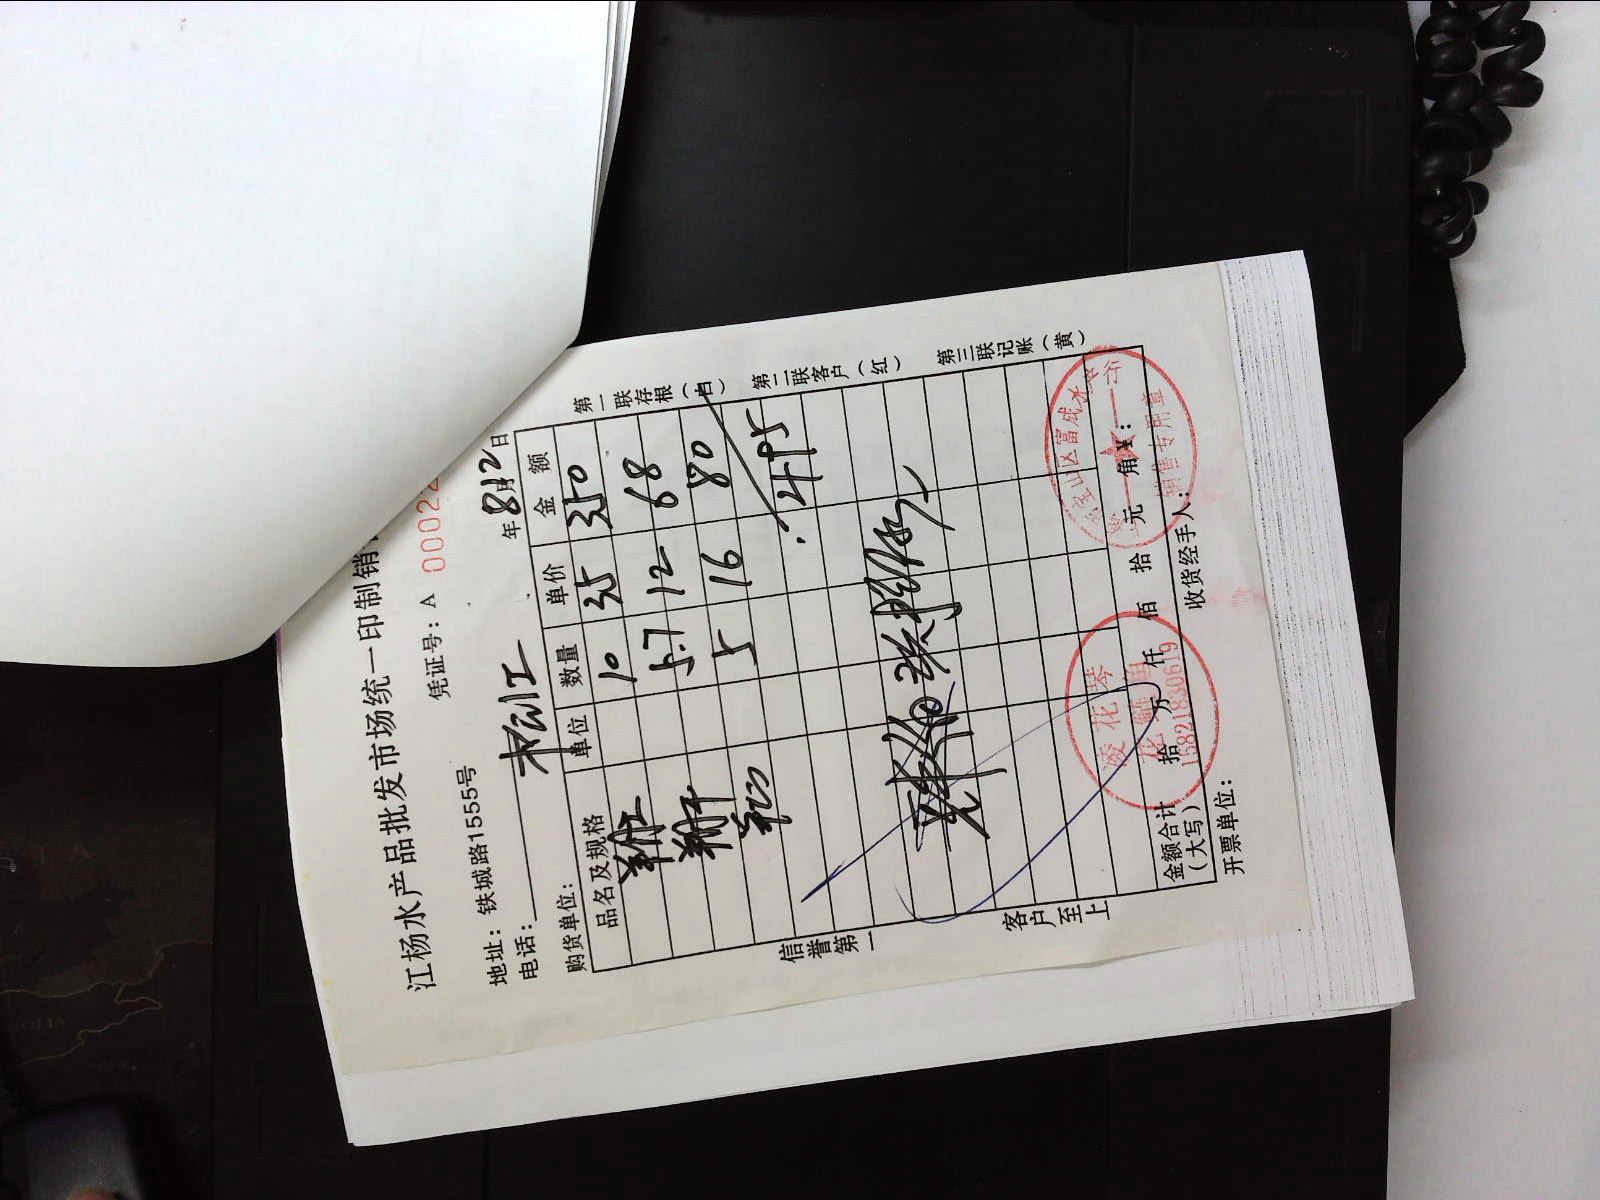 江杨水产品批发市场统一印制销
凭证号：A 00022
地址：铁城路1555号
电话：
年8月12日
购货单位： 松江
品名及规格 单位 数量 单价 金额
10 35 350
5.7 12 68
5 16 80
：495
第一联存根（白）
第二联客户（红）
第三联记账（黄）
信誉第一
客户至上
金额合计（大写） 拾 万 仟 佰 拾 元 角 ¥：
开票单位： 收货经手人：
凌花琴
花鲢鱼
15821830619
宝山区富成水
销售专用章